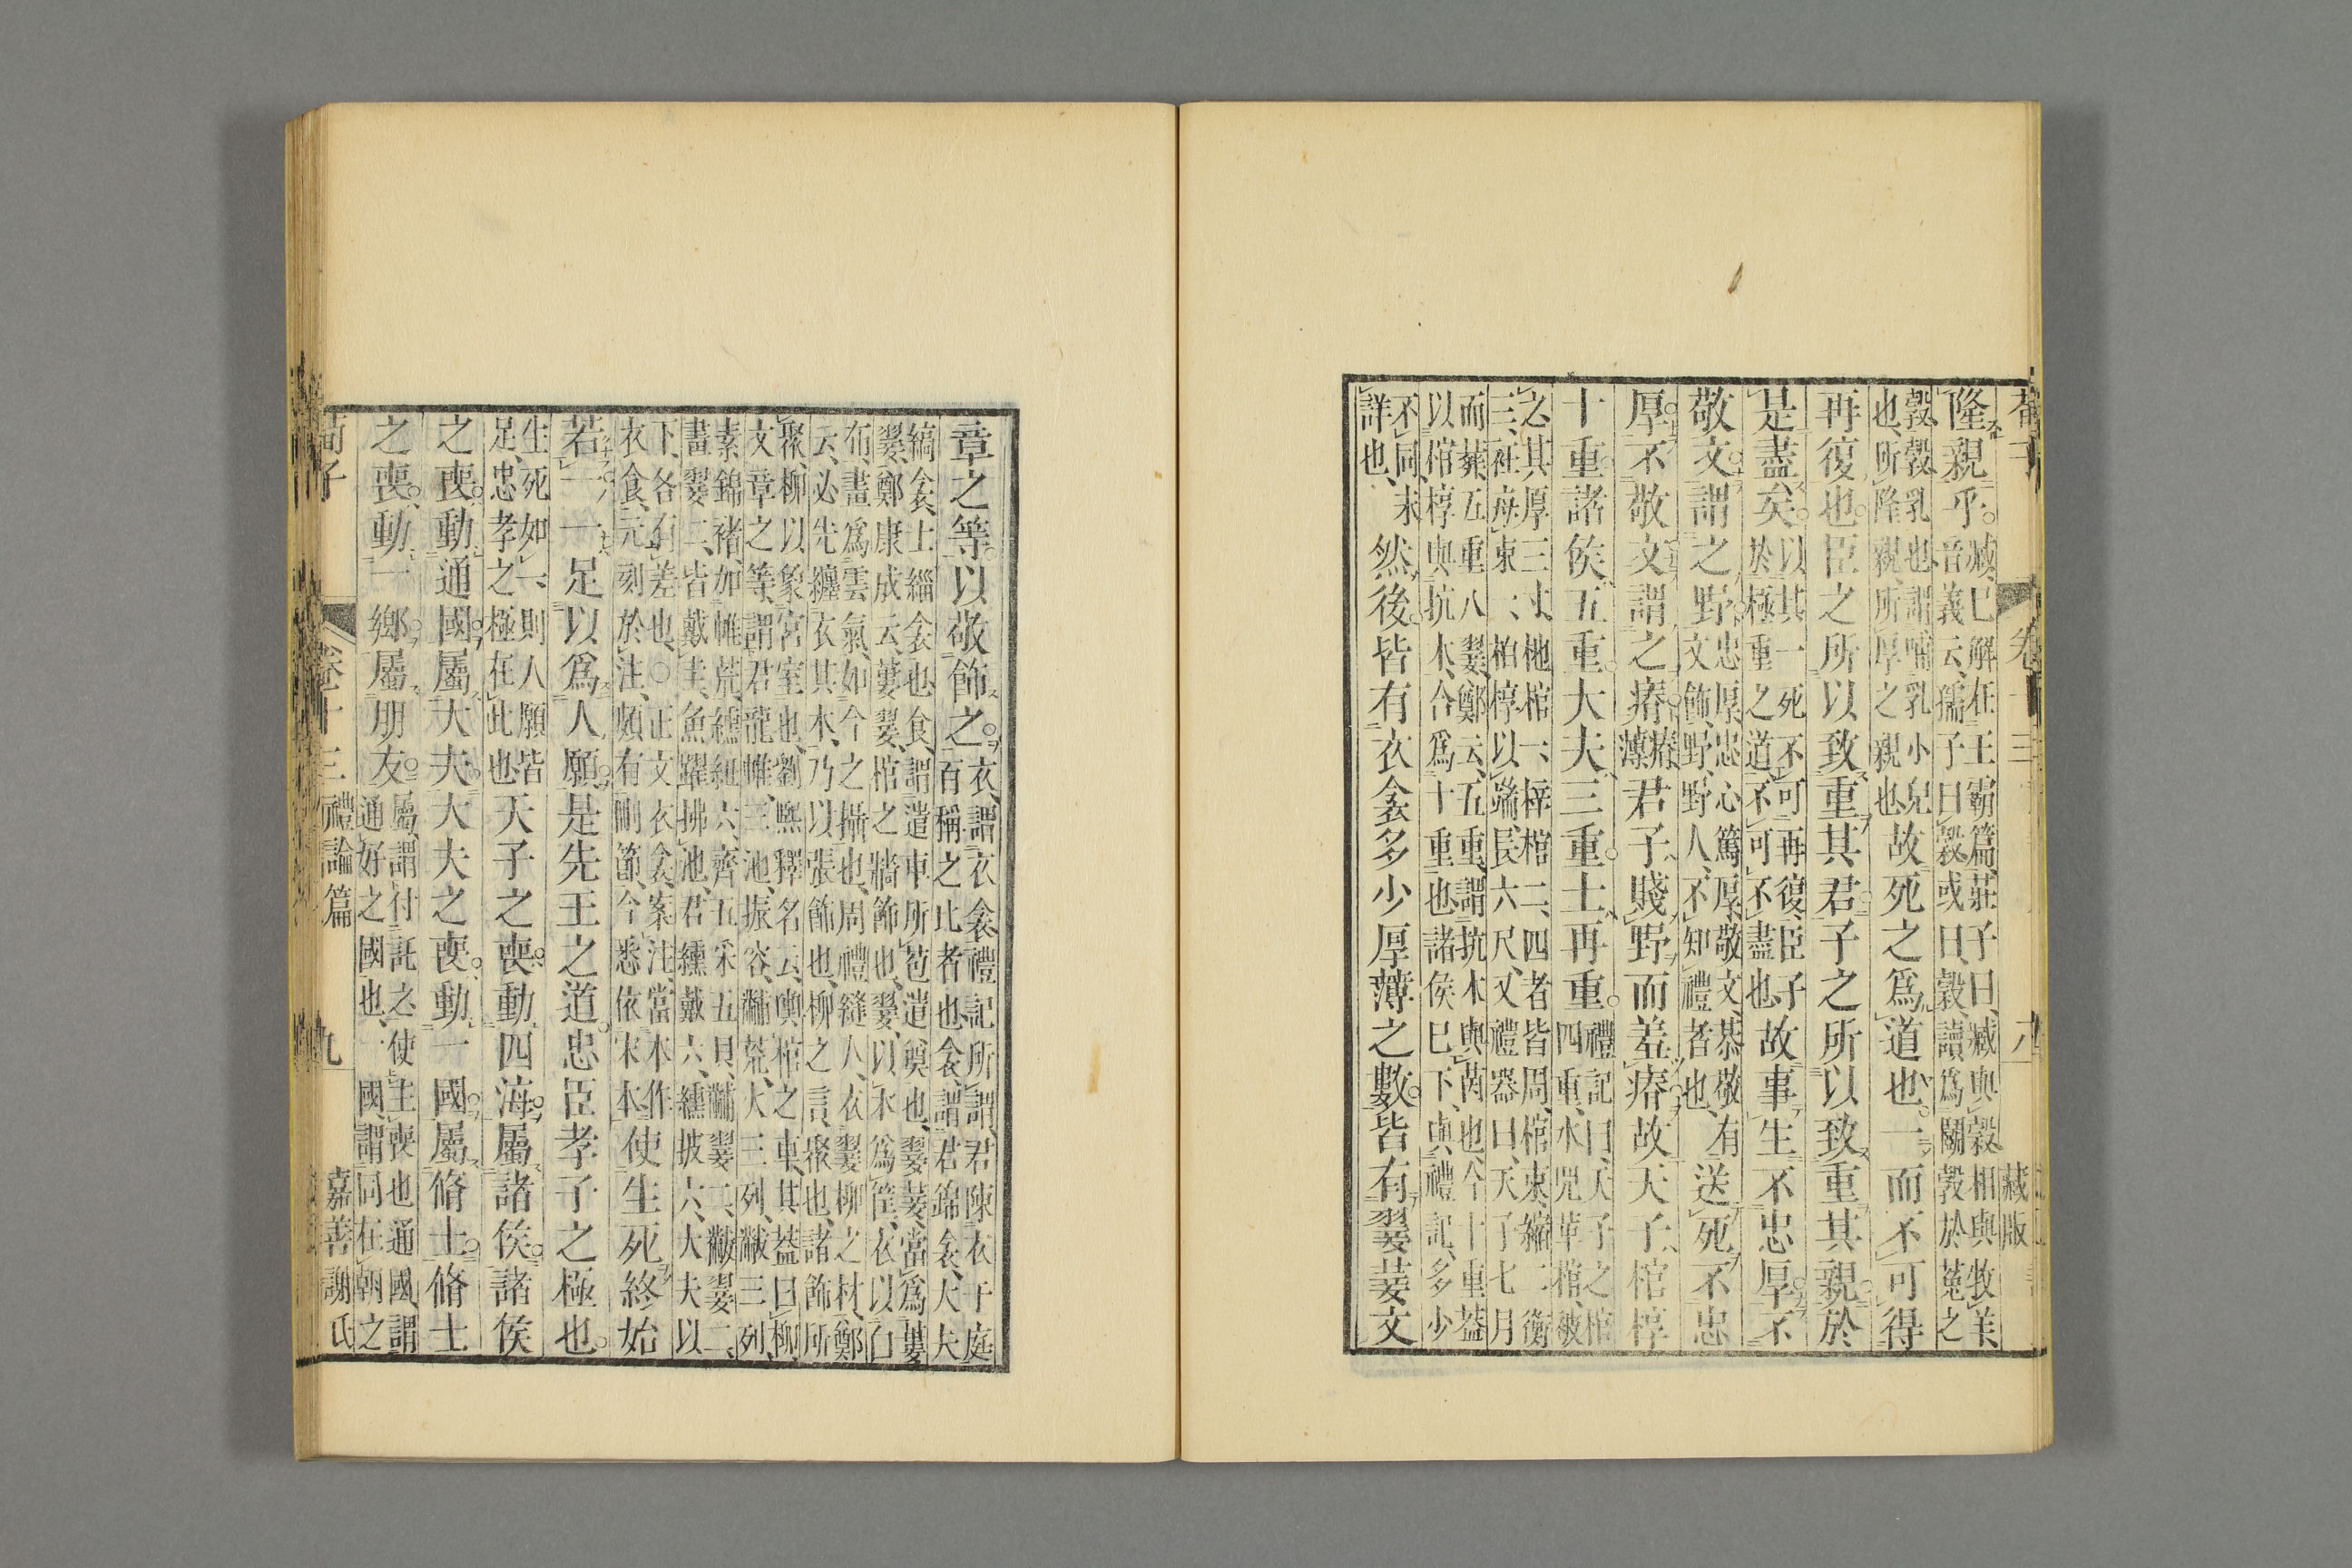 荀子 卷十三 八 藏版
隆親乎。臧、已解在王霸篇、莊子曰、臧與穀相與牧羊、音義云、孺子曰穀、或曰、穀、讀爲鬬㝅於菟之
㝅㝅、乳也、謂哺乳小兒也、所隆親、所厚之親也故死之爲道也。一而不可得
再復也。臣之所以致重其君。子之所以致重其親。於
是盡矣。以其一死不可再復、臣子於極重之道、不可不盡也故事生不忠厚。不
敬文。謂之野。忠厚、忠心篤厚、敬文、恭敬有文飾、野、野人、不知禮者也、送死不忠
厚。不敬文。謂之瘠。瘠、薄君子賤野而羞瘠。故天子棺椁
十重諸侯五重。大夫三重。士再重。禮記曰、天子之棺四重、水兕革棺、被
之、其厚三寸、杝棺一、梓棺二、四者皆周、棺束、縮二衡三、衽每束一、柏椁以端、長六尺、又禮器曰、天子七月
而葬五重八翣、鄭云、五重、謂抗木與茵也、今十重蓋以棺椁與抗木、合爲十重也諸侯已下、與禮記、多少
不同、未詳也、然後皆有衣衾多少厚薄之數。皆有翣菨文
章之等。以敬飾之。衣、謂衣衾禮記所謂、君陳衣于庭百稱之比者也衾、謂君錦衾、大夫
縞衾、士緇衾也食、謂遣車所苞遣奠也、翣菨、當爲蔞翣、鄭康成云、蔞翣、棺之牆飾也、翣、以木爲筐、衣以白
布、畫爲雲氣、如今之攝也、周禮縫人、衣翣柳之材、鄭云、必先纏衣其木、乃以張飾也、柳之言、聚也、諸飾所
聚、柳以象宮室也、劉熙釋名云、輿棺之車、其蓋曰柳、文章之等、謂君龍帷、三池、振容、黼荒、火三列、黻三列、
素錦褚、加帷荒、纁紐六、齊五采五貝、黼翣二、黻翣二、畫翣二、皆戴圭、魚躍拂池、君纁戴六、纁披六、大夫以
下、各有差也、○正文衣衾、案注當本作衣食、元刻於注、頗有刪節、今悉依宋本使生死終始
若一。一足以爲人願。是先王之道。忠臣孝子之極也。
生死如一、則人願皆足、忠孝之極在此也天子之喪。動四海。屬諸侯。諸侯
之喪。動通國。屬大夫。大夫之喪。動一國。屬脩士。脩士
之喪。動一鄉。屬朋友。屬、謂付託之使主喪也通國、謂通好之國也、一國、謂同在朝之
荀子 卷十三 禮論篇 九 嘉善謝氏